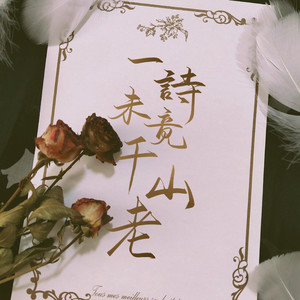 一詩未竟千山老
Tous mes meilleurs